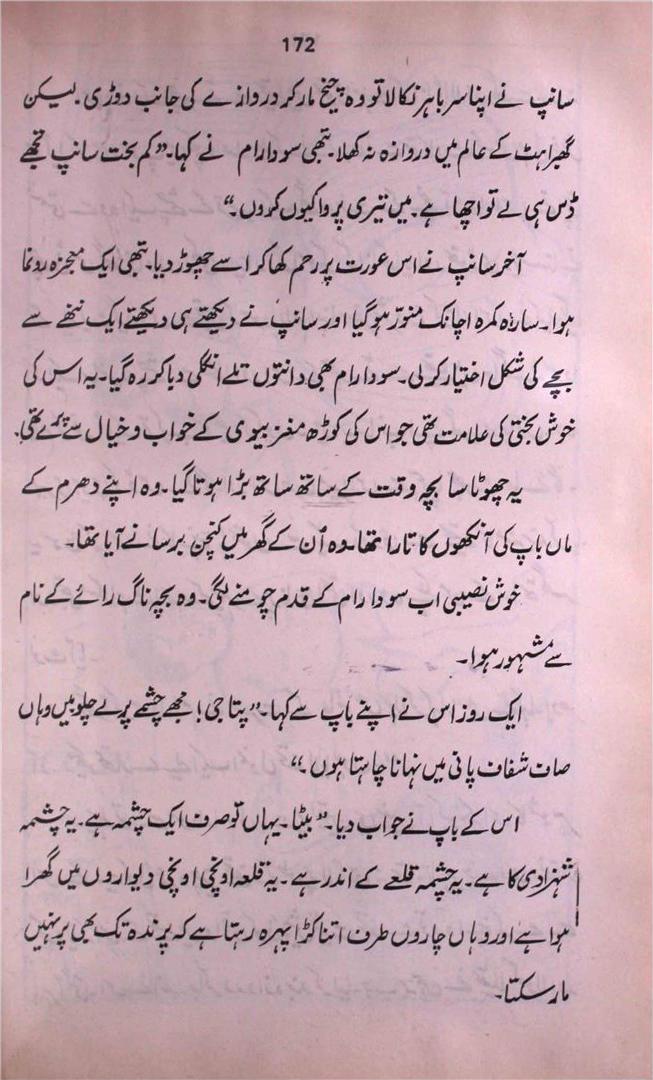 172
سانپ نے اپنا سر باہر نکالا تو وہ چیخ مار کر دروازے کی جانب دوڑی۔ لیکن
گھبراہٹ کے عالم میں دروازہ نہ کھلا۔ تبھی سودا رام نے کہا۔ ”کم بخت سانپ تجھے
ڈس ہی لے تو اچھا ہے۔ میں تیری پروا کیوں کروں۔“
آخر سانپ نے اس عورت پر رحم کھا کر اسے چھوڑ دیا۔ تبھی ایک معجزہ رونما
ہوا۔ سارہ کمرہ اچانک منوّر ہو گیا اور سانپ نے دیکھتے ہی دیکھتے ایک ننھے سے
بچے کی شکل اختیار کر لی۔ سودا رام بھی دانتوں تلے انگلی دبا کر رہ گیا۔ یہ اس کی
خوش بختی کی علامت تھی جو اس کی کوڑھ مغز بیوی کے خواب و خیال سے پرے تھی۔
یہ چھوٹا سا بچہ وقت کے ساتھ ساتھ بڑا ہوتا گیا۔ وہ اپنے دھرم کے
ماں باپ کی آنکھوں کا تارا تھا۔ وہ اُن کے گھر میں کنچن برسانے آیا تھا۔
خوش نصیبی اب سودا رام کے قدم چومنے لگی۔ وہ بچہ ناگ رائے کے نام
سے مشہور ہوا۔
ایک روز اس نے اپنے باپ سے کہا۔ ”پتا جی! مجھے چشمے پر لے چلو میں وہاں
صاف شفاف پانی میں نہانا چاہتا ہوں۔“
اس کے باپ نے جواب دیا۔ ”بیٹا۔ یہاں تو صرف ایک چشمہ ہے۔ یہ چشمہ
شہزادی کا ہے۔ یہ چشمہ قلعے کے اندر ہے۔ یہ قلعہ اونچی اونچی دیواروں میں گھرا
ہوا ہے اور وہاں چاروں طرف اتنا کڑا پہرہ رہتا ہے کہ پرندہ تک بھی پر نہیں
مار سکتا۔